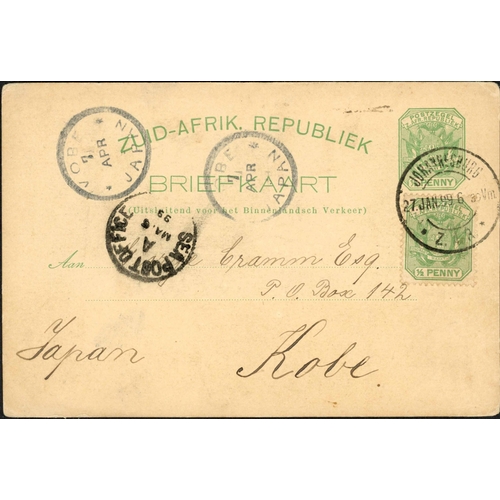 ZUID-AFRIK. REPUBLIEK
BRIEFKAART
(Uitsluitend voor het Binnenlandsch Verkeer)
Aan Cramm Esq.
P.O. Box 142
Japan Kobe
PENNY
½ PENNY
JOHANNESBURG
27 JAN 99 6
Z.A.R.
KOBE
7 APR
JAPAN
KOBE
7 APR
JAPAN
SEA POST OFFICE
A
MA 6
99